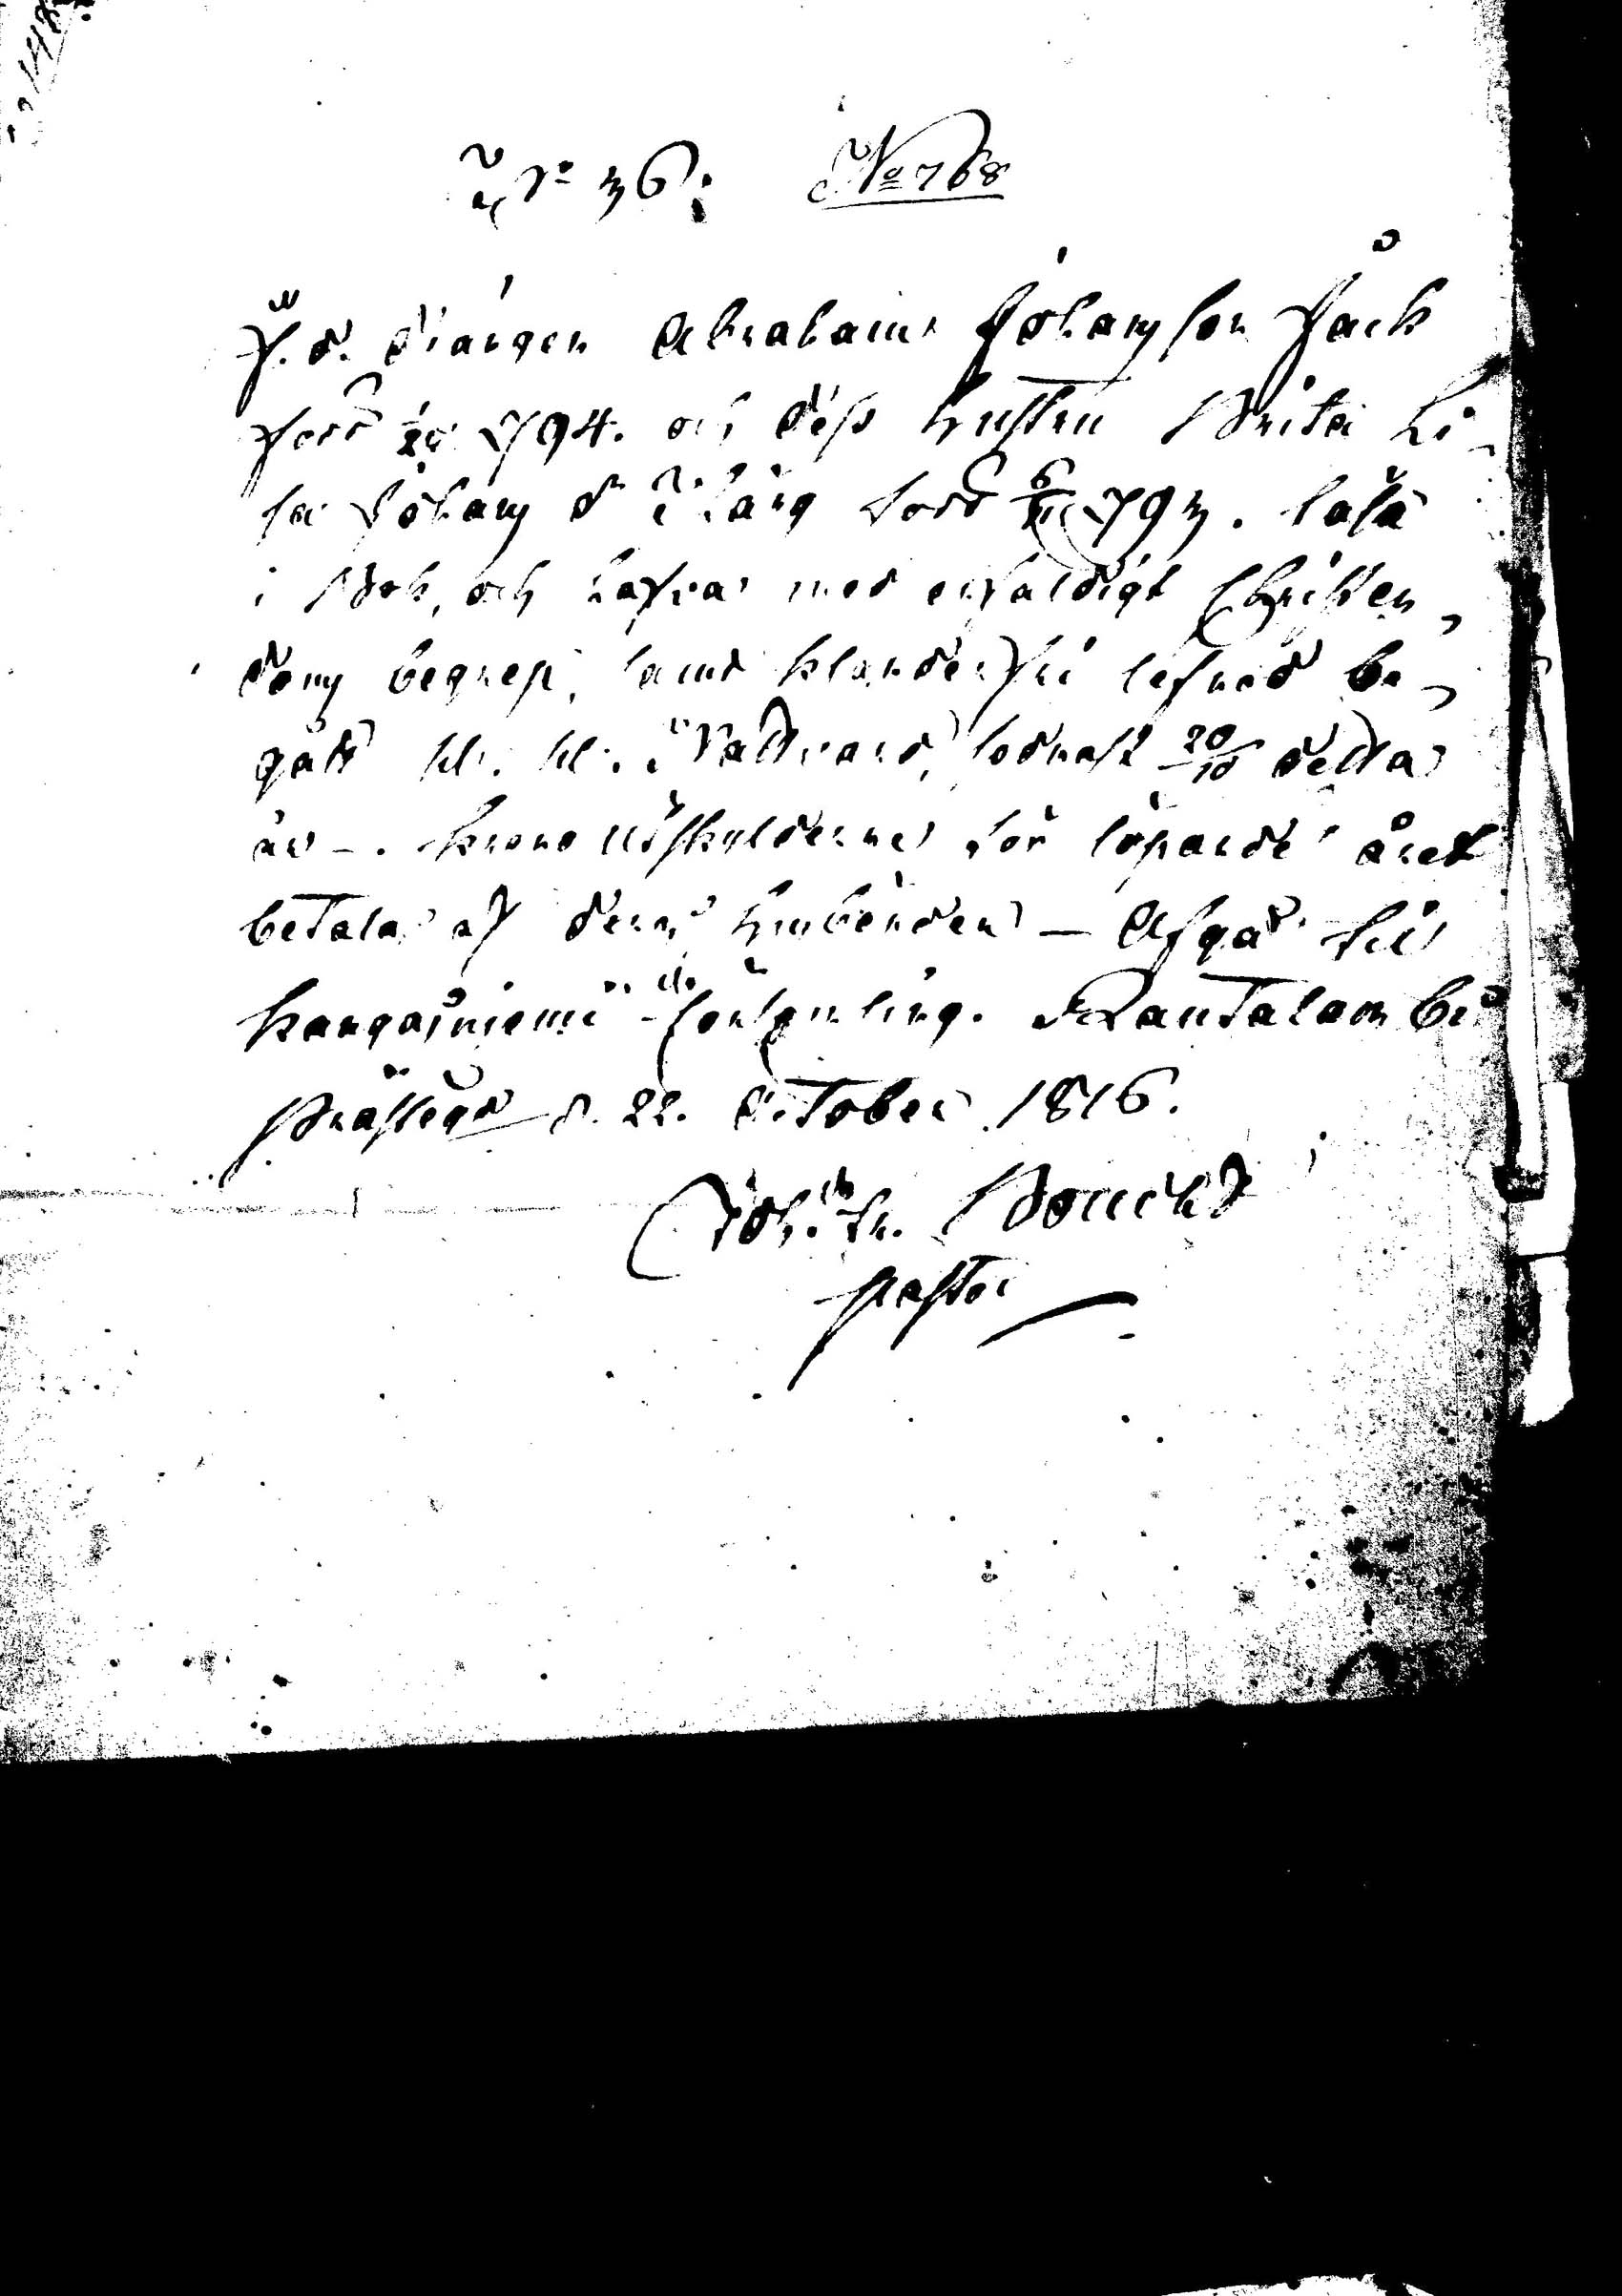 No 36. No 768
F. d. Drängen Abraham Johansson Jack
född 794. och dess hustru Brita Li-
sa Johans dr född 6/11 793. läsa
i Bok, och hafva med enfaldigt Christen-
doms begrep, samt klanderfri lefnad be-
gått hl. hl. Nattvard, sednast 20/10 detta
år –. Krono utskylderne för löpande året
betalas af dem husbonden – Afgår till
Kangasniemi församling. Rautalambi
Prästegd d. 22. October 1816.
Joh. Fr. Bonsdorff
Pastor